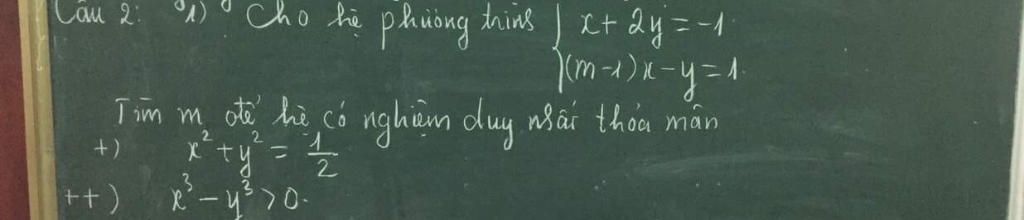 Câu 2: 1) Cho hệ phương trình { x + 2y = -1
(m-1)x - y = 1.
Tìm m để hệ có nghiệm duy nhất thỏa mãn
+) x² + y² = 1/2
++) x³ - y³ > 0.